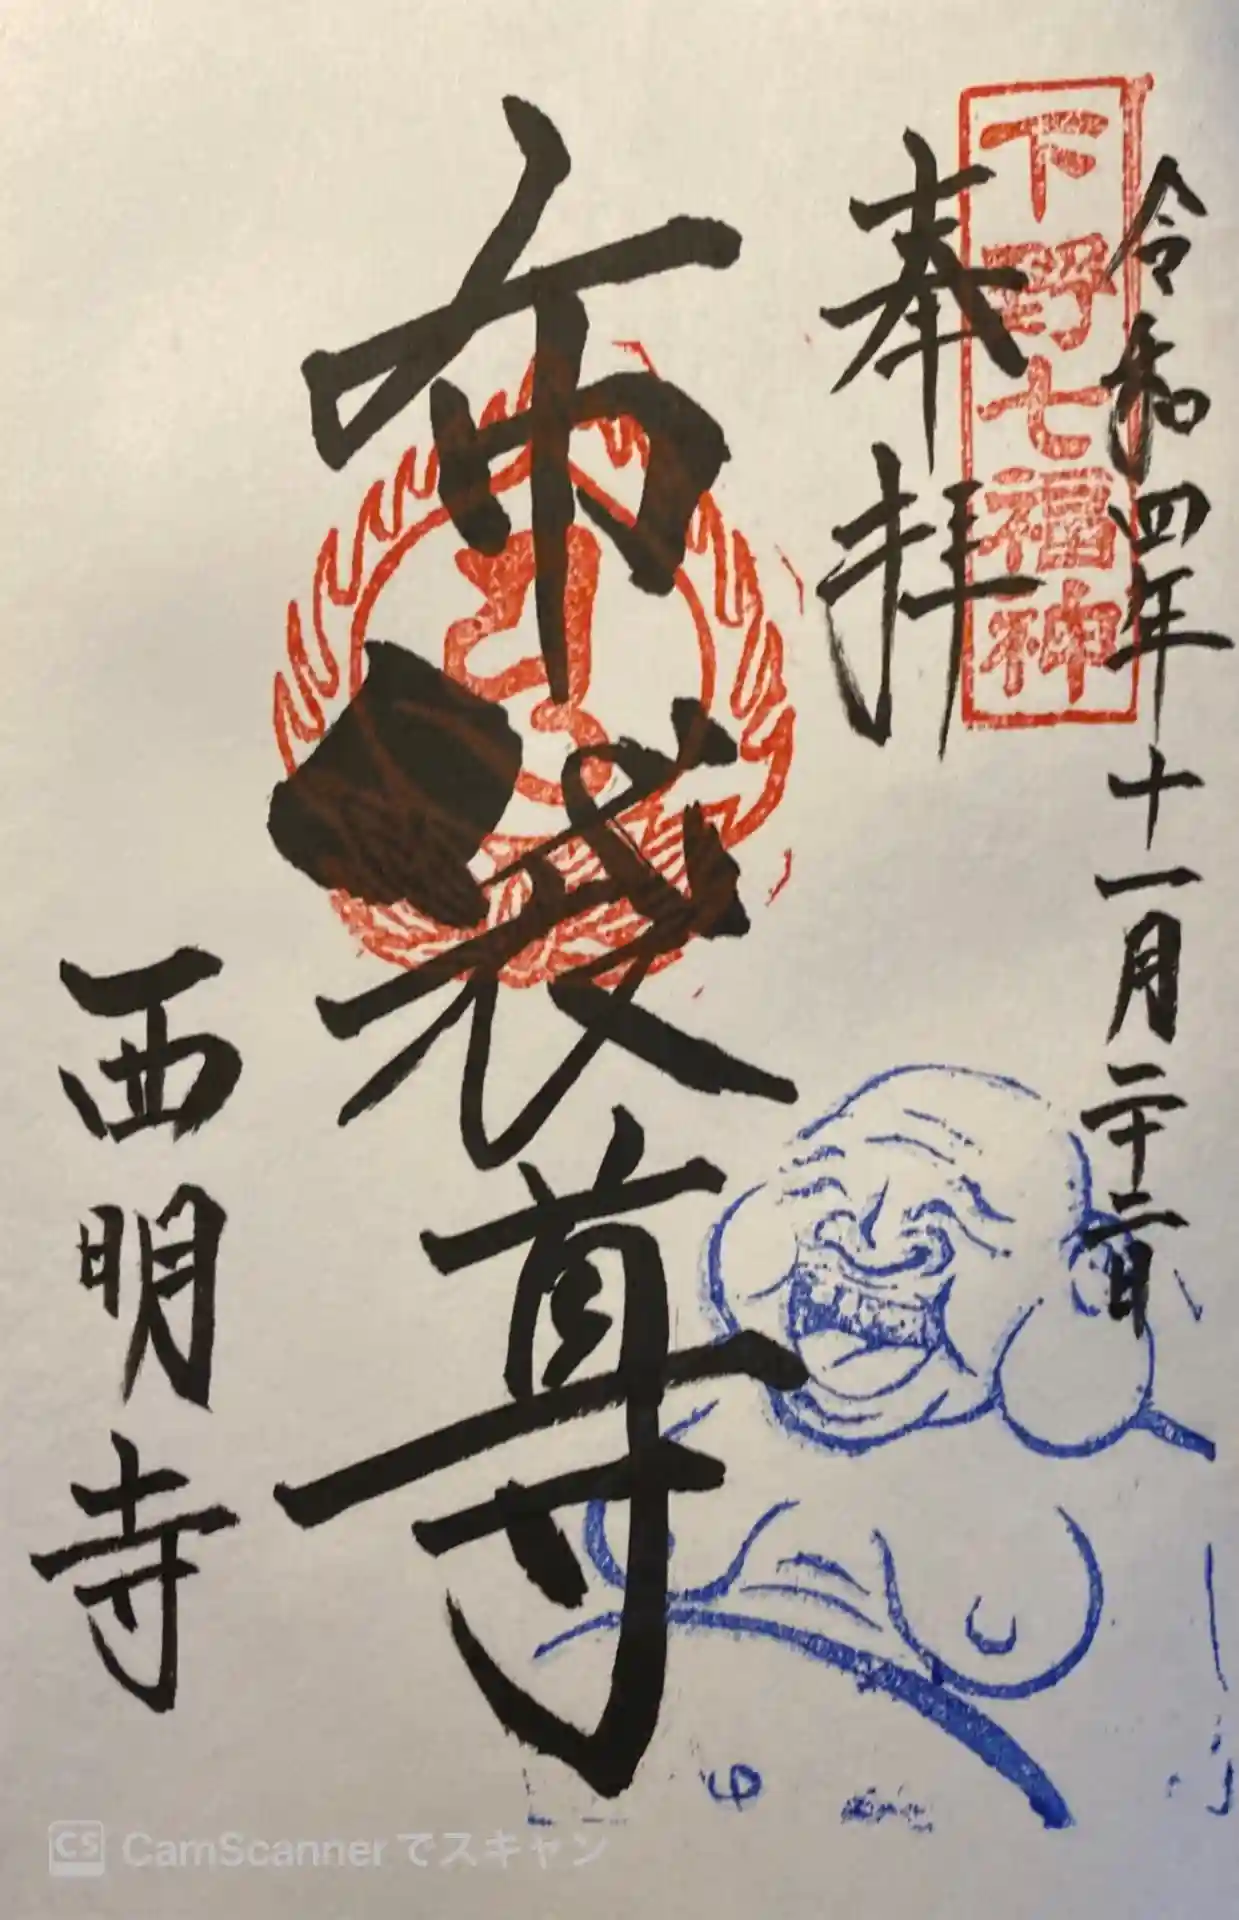 令和四年十一月二十二日
下野七福神
奉拝
布袋尊
西明寺
CS CamScannerでスキャン